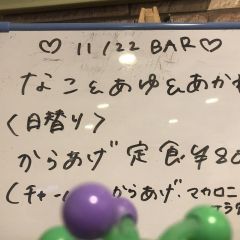 ♡ 11/22 BAR ♡
なこ&あゆ&あかね
<日替り>
からあげ定食¥80
(チャー からあげ、マカロニ
サラダ